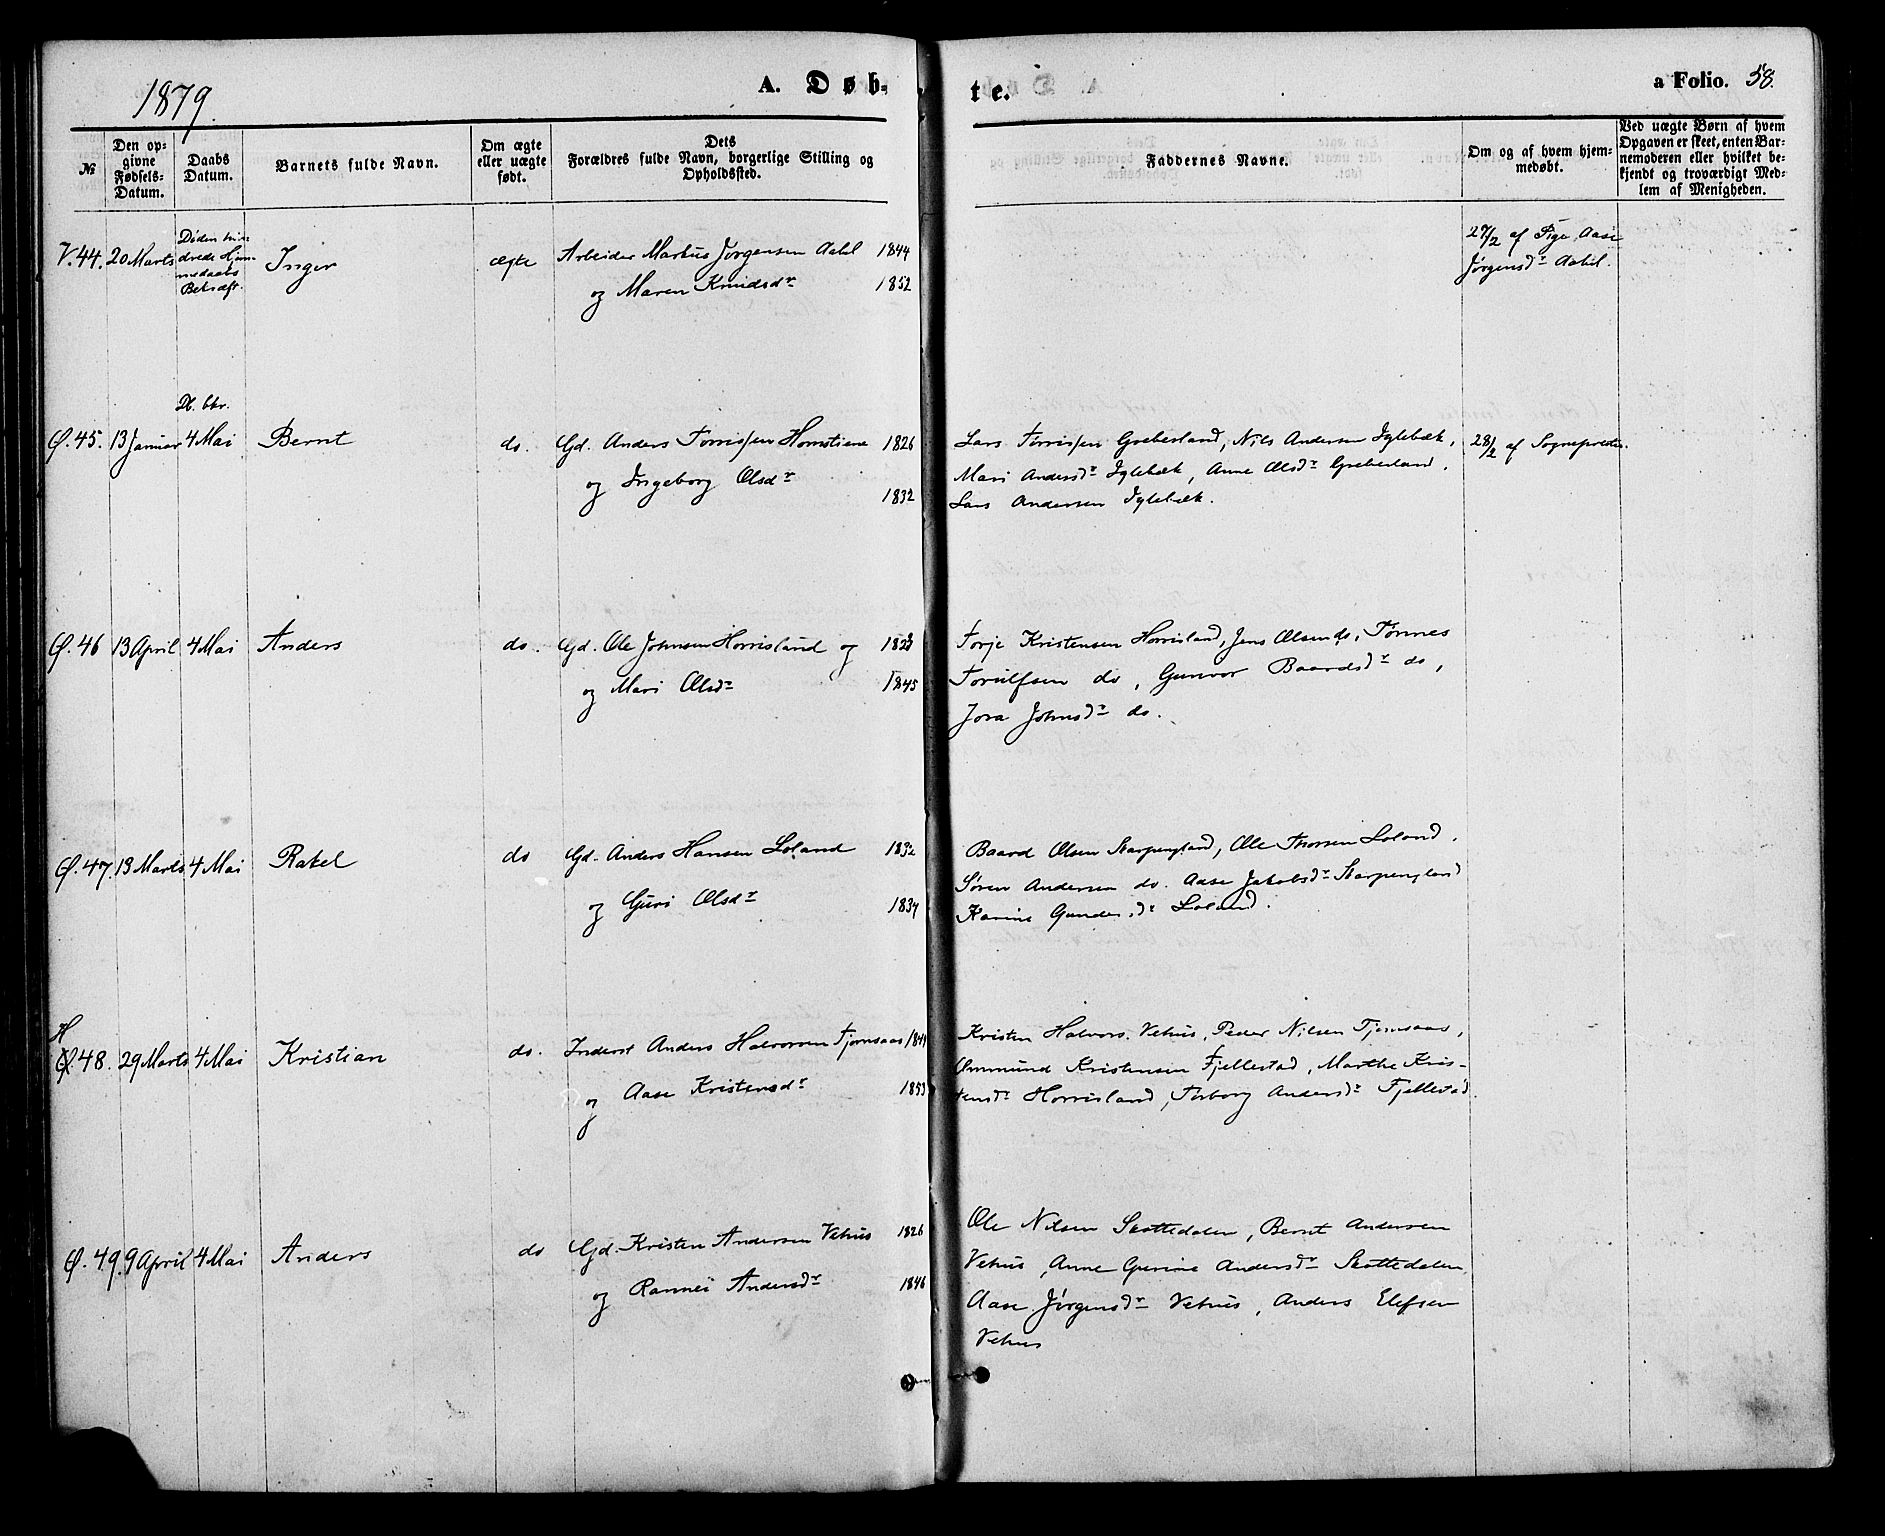 1879.
A. Døb-
te.
a Folio. 58.
№
Den op-
givne
Fødsels-
Datum.
Daabs
Datum.
Barnets fulde Navn.
Om ægte
eller uægte
født.
Dets
Forældres fulde Navn, borgerlige Stilling og
Opholdssted.
Faddernes Navne.
Om og af hvem hjem-
medøbt.
Ved uægte Børn af hvem
Opgaven er skeet, enten Bar-
nemoderen eller hvilket be-
kjendt og troværdigt Med-
lem af Menigheden.
V. 44. 20 Marts
Døden hin-
drede Hjem-
medaabs
Bekræft.
Inger
ægte
Arbeider Markus Jørgensen Aabel 1844
og Maren Knudsdr 1852
af Pige Aase
Jørgensdr Aabel.
Db. bkr.
Ø. 45. 13 Januar 4 Mai Bernt do. Gd. Anders Torrissen Homstiene 1826
og Ingeborg Olsdr
1832
Lars Torrissen Greberland, Nils Andersen Iglebæk,
Mari Andersdr Iglebæk, Anne Olsdr Greberland.
Lars Andersen Iglebæk.
28/2 af Sognepræsten
Ø. 46 13 April 4 Mai Anders do. Gd. Ole Johnsen Horrisland og
og Mari Olsdr 1845
Torje Kristensen Horrisland, Jens Olsen do, Tønnes
Torulfsen do, Gunvor Baardsdr do,
Jora Johnsdr do.
Ø. 47. 13 Marts 4 Mai Rakel do Gd. Anders Hansen Loland 1832
og Guri Olsdr 1834
Baard Olsen Skarpengland, Ole Thorsen Loland.
Søren Andersen do. Aase Jakobsdr Skarpengland
Karine Gundersdr Loland.
H
Ø. 48. 29 Marts 4 Mai Kristian do. Inderst Anders Halvorsen Tjomsaas 1841
og Aase Kristensdr 1853
Kristen Halvors. Vehus, Peder Nilsen Tjomsaas,
Ommund Kristensen Fjellestad, Marthe Kris-
tensdr Horrisland, Torborg Andersdr Fjellestad.
Ø. 49. 9 April 4 Mai Anders do Gd. Kristen Andersen Vehus 1826
og Rannei Andersdr 1846
Ole Nilsen Skottedalen, Bernt Andersen
Vehus, Anne Gurine Andersdr Skottedalen,
Aase Jørgensdr Vehus, Anders Elefsen
Vehus